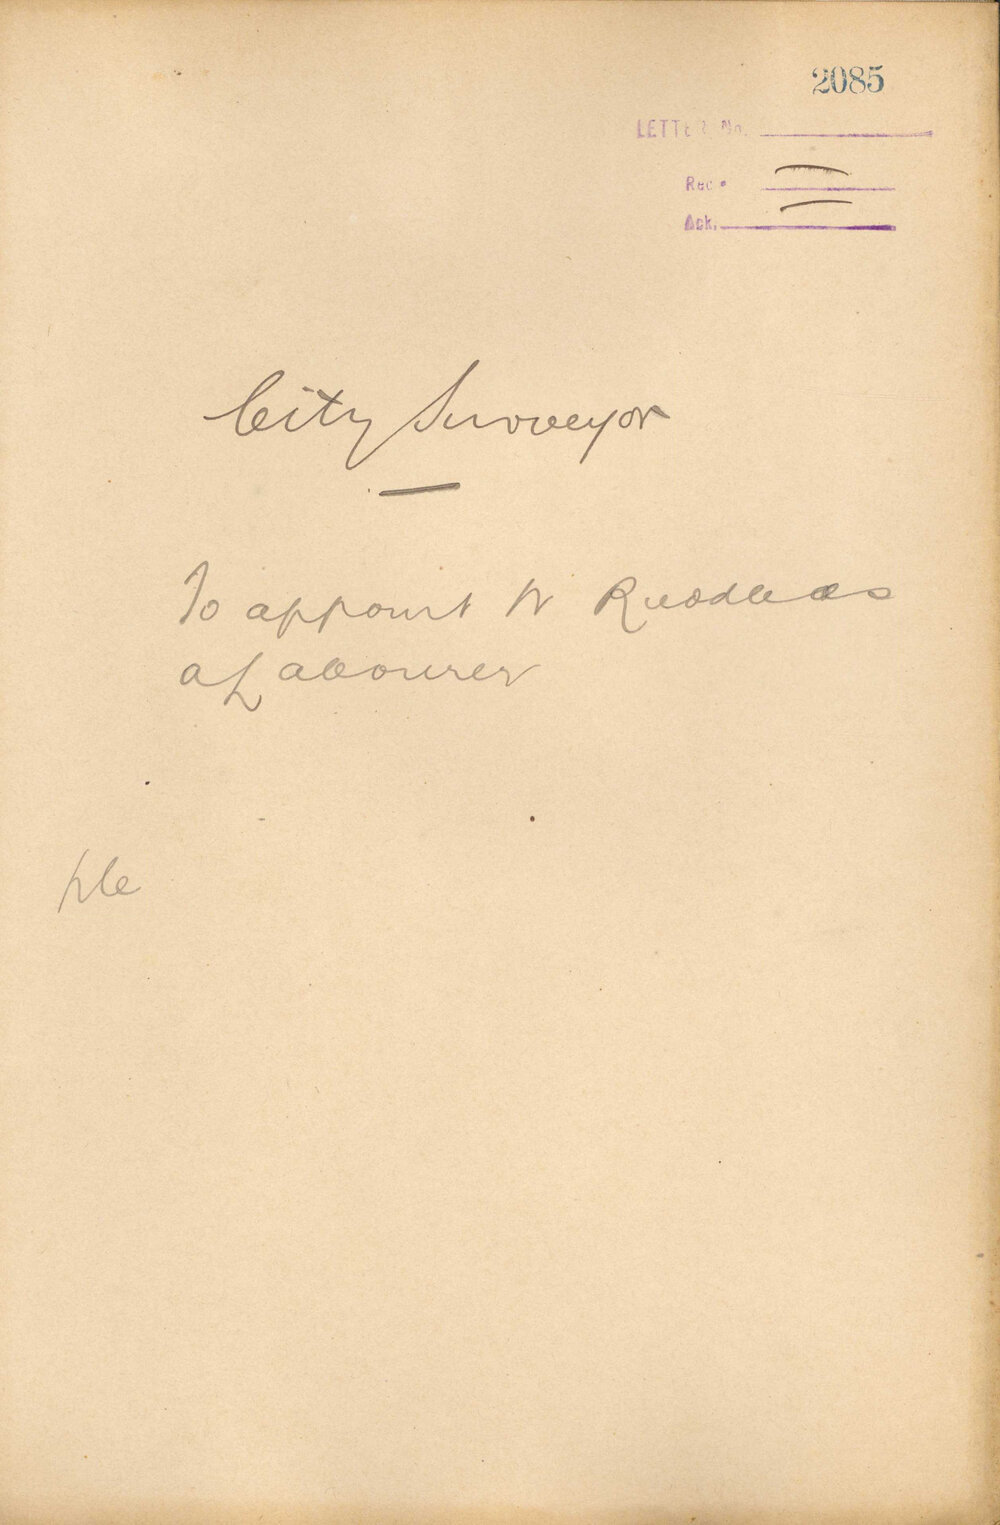 2085
LETTER No.
Rec.
Ack.
City Surveyor
To appoint W as
a Labourer
file